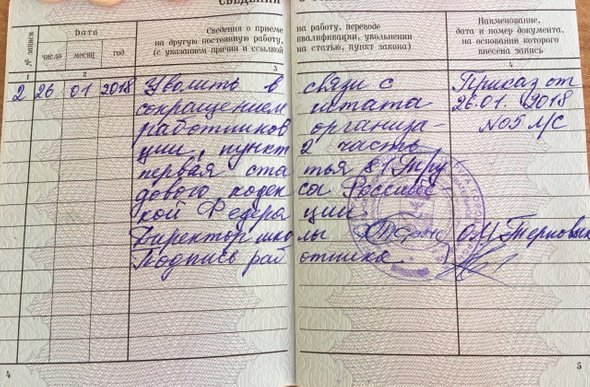 СВЕДЕНИЯ О
№ записи
Дата
число месяц год
Сведения о приеме на работу, переводе
на другую постоянную работу, квалификации, увольнении
(с указанием причин и ссылкой на статью, пункт закона)
Наименование,
дата и номер документа,
на основании которого
внесена запись
1 2 3 4
2 26 01 2018 Уволить в связи с Приказ от
сокращением штата 26.01.2018
работников организа- №05 л/с
ции, пункт 2 часть
первая статья 81 Тру
дового кодекса Российс
кой Федерации
Директор школы О.М. Терновых
Подпись работника
4
5